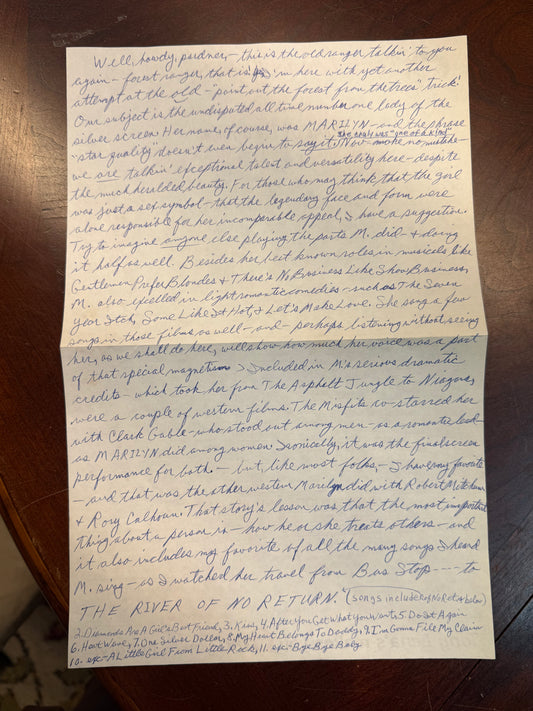 Well, howdy, pardner, - this is the old ranger talkin' to you
again - forest ranger, that is, I'm here with yet another
attempt at the old - "point out the forest from the trees" trick!
Our subject is the undisputed all time number one lady of the
silver screen. Her name, of course, was MARILYN - and the phrase
"star quality" doesn't even begin to say it. she really was "one of a kind" Now - make no mistake -
we are talkin' exceptional talent and versatility here - despite
the much heralded beauty. For those who may think that the girl
was just a sex symbol - that the legendary face and form were
alone responsible for her incomparable appeal, I have a suggestion.
Try to imagine anyone else playing the parts M. did - & doing
it half as well. Besides her best known roles in musicals like
Gentlemen Prefer Blondes & There's No Business Like Show Business,
M. also excelled in light romantic comedies - such as The Seven
Year Itch, Some Like It Hot, & Let's Make Love. She sang a few
songs in those films, as well - and - perhaps, listening without seeing
her, as we shall do here, will show how much her voice was a part
of that special magnetism. Included in M's serious, dramatic
credits - which took her from The Asphalt Jungle to Niagara,
were a couple of western films. The Misfits co-starred her
with Clark Gable - who stood out among men - as a romantic lead -
as MARILYN did among women. Ironically, it was the final screen
performance for both. - but, like most folks, - I have my favorite
- and that was the other western Marilyn did with Robert Mitchum
& Rory Calhoun. That story's lesson was that the most important
thing about a person is - how he or she treats others - and
it also includes my favorite of all the many songs I heard
M. sing - as I watched her travel from Bus Stop ---- to
THE RIVER OF NO RETURN." (songs include Rof No Ret. & below)
2. Diamonds Are A Girl's Best Friend, 3. Kiss, 4. After You Get What you want, 5. Do It Again
6. Heat Wave, 7. One Silver Dollar, 8. My Heart Belongs To Daddy, 9. I'm Gonna File My Claim
10. exc - A Little Girl From Little Rock, 11. exc - Bye Bye Baby